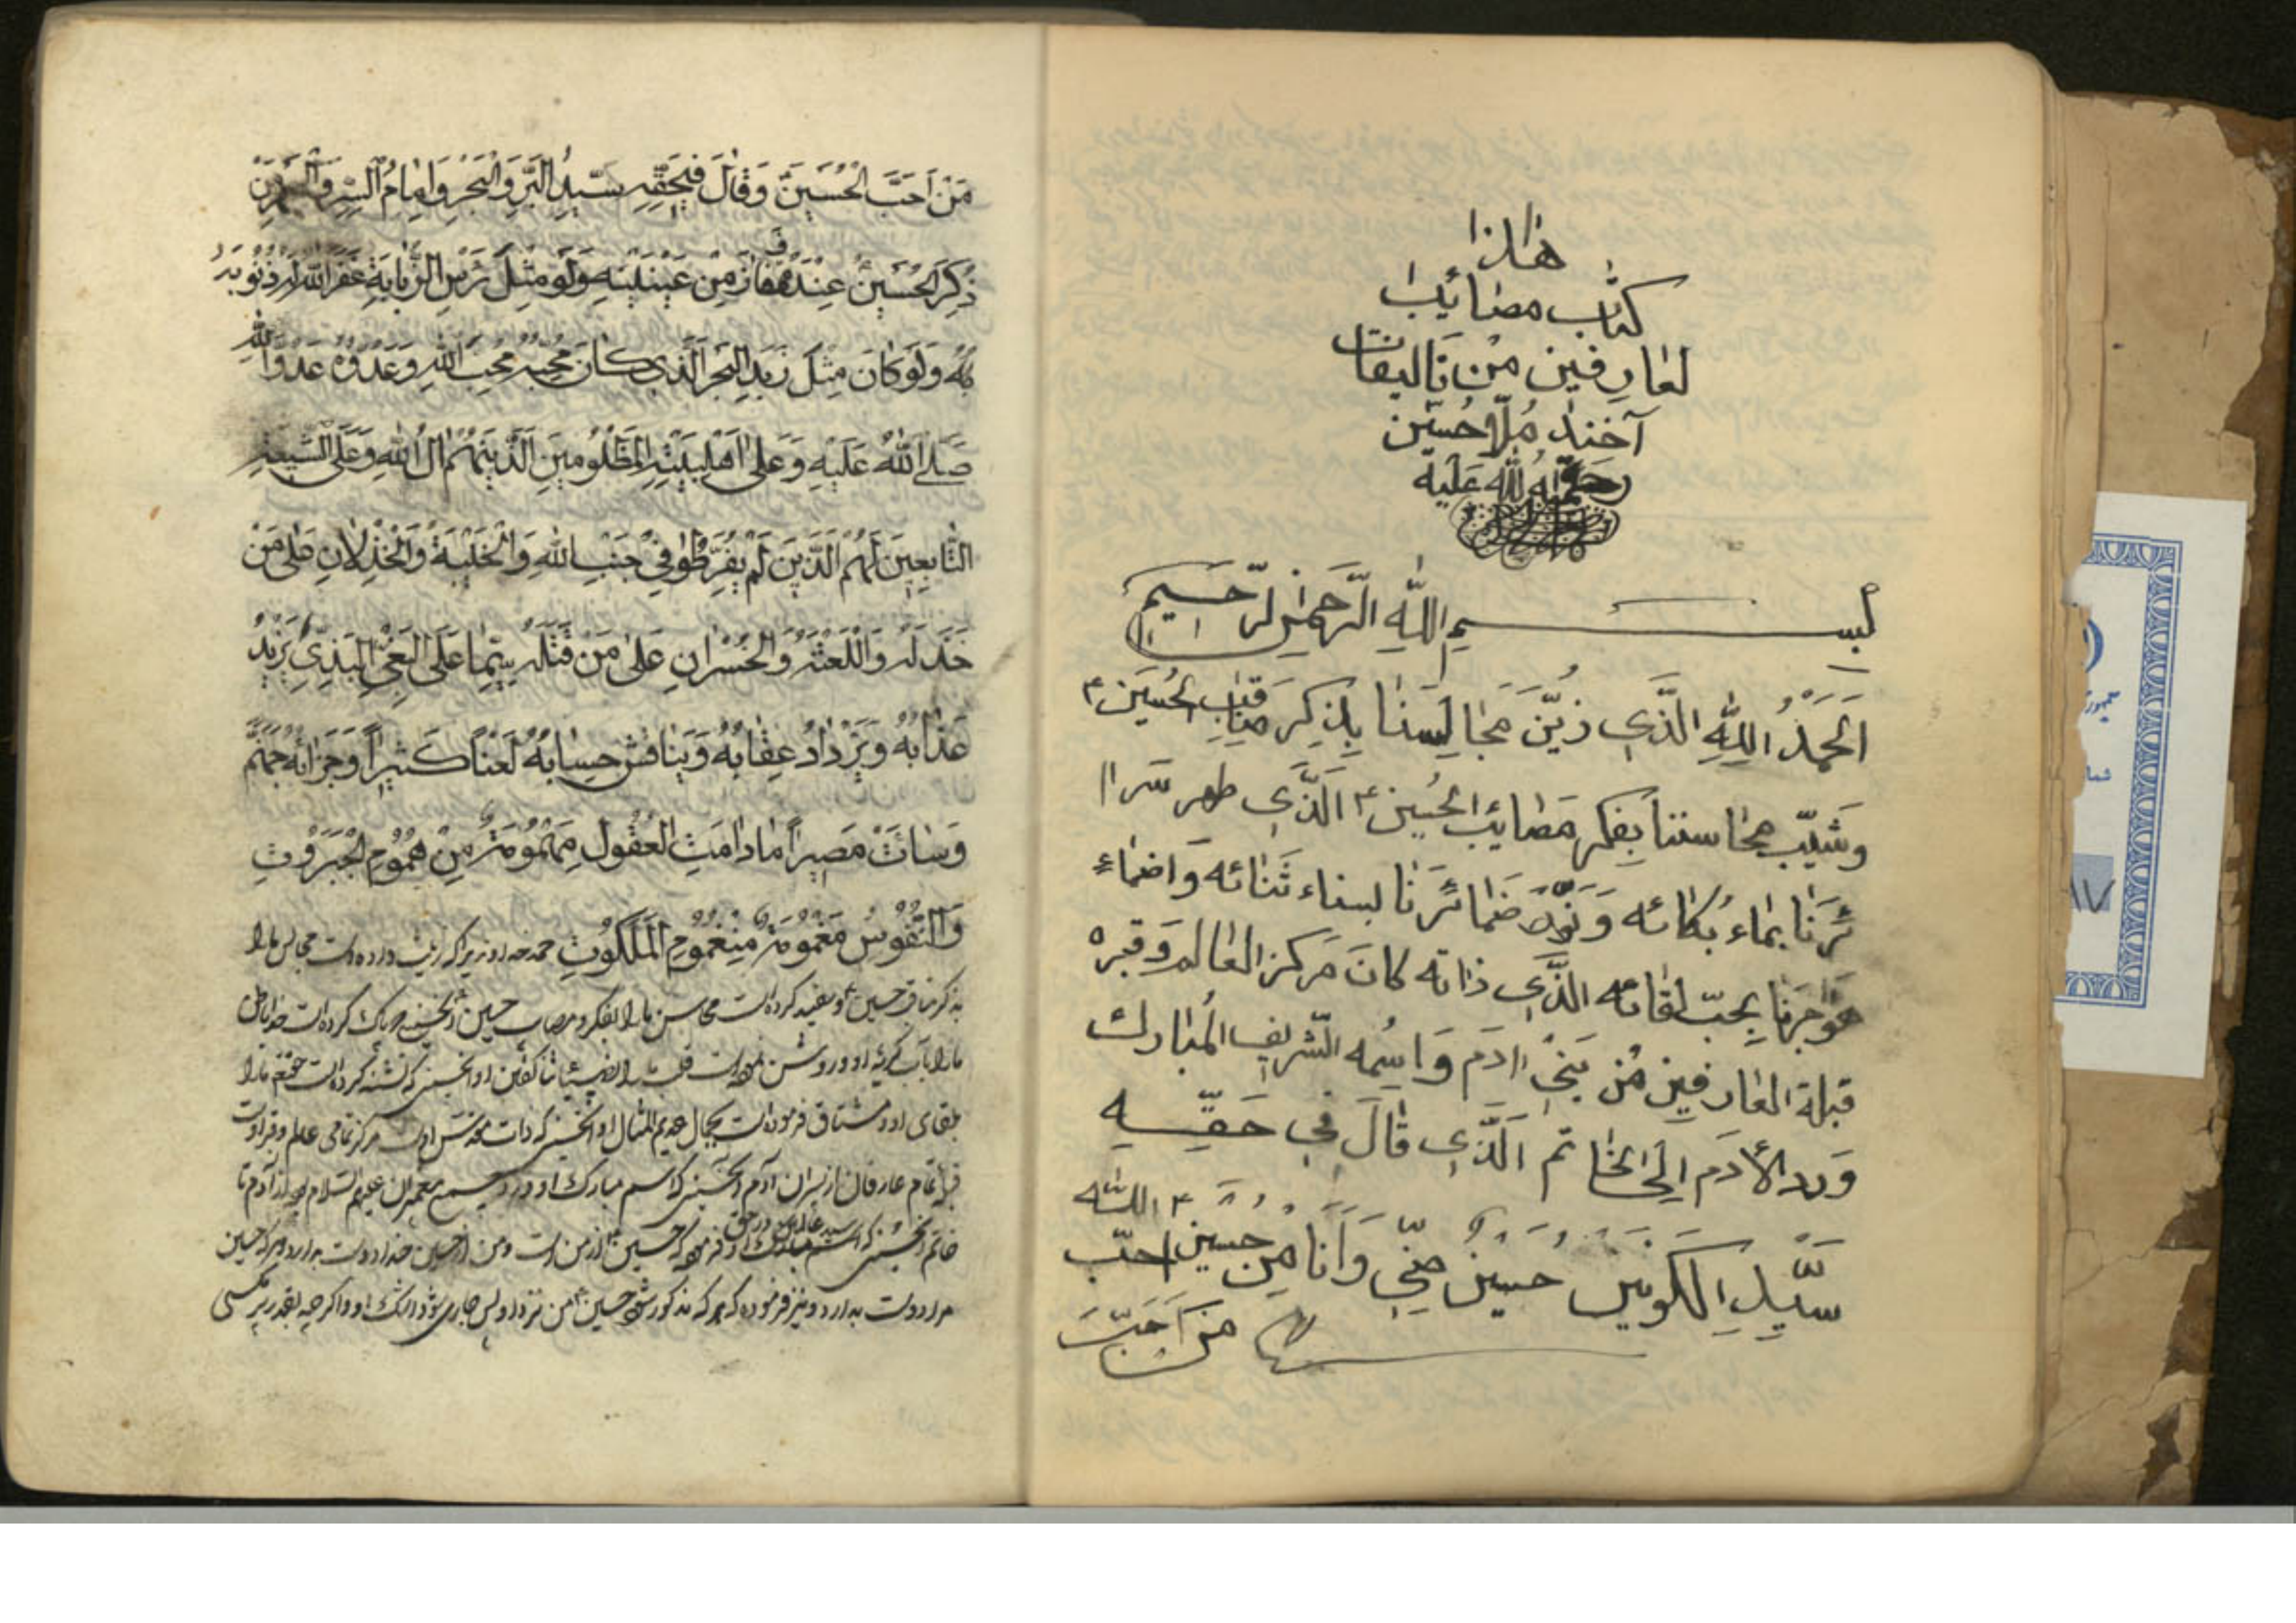 هذا
كتاب مصائب
لعارفين من تاليفات
آخند ملا حسين
رحمة الله عليه
بسم الله الرحمن الرحيم
الحمد الله الذى زين مجالسنا بذكر مناقب الحسين ع
وشيب محاسننا بفكر مصائب الحسين ع الذى طهر سرا
ئرنا بماء بكائه و نور ضمائرنا لبناء ثنائه واضماء
هواجرنا بحب لقائه الذى ذاته كان مركز العالم وقبره
قبلة العارفين من بنى ادم واسمه الشريف المبارك
ورد الأدم الى الخاتم الذى قال فى حقه
سيد الكونين حسين منى وانا من حسين ع احب الله
من احب
من احب الحسين وقال فى حقه سيد البر والبحر وامام السر و
ذكر الحسين عنده ففاز من عينيه ولو مثل رس الذبابة غفر الله له ذنوبه
ولو كان مثل زبد البحر الذى كان محبه محب الله وعدوه عدو الله
صلى الله عليه وعلى اهلبيته المظلومين الذينهم ال الله وعلى الشيعة
التابعين لهم الذين لم يفرطوا فى جنب الله والخيبة والخذلان على من
خذله واللعنة والخسران على من قتله سيما على البغى البذى يزيد
عذابه ويزداد عقابه ويناقش حسابه لعنا كثيرا وجزائه جهنم
وسائت مصيرا مادامت العقول مهمومة من هموم الجبروت
والنفوس مغمومة من غموم الملكوت حمد خداوندير اكه زينت داده است مجالس ما را
بذكر مناقب حسين ع و سفيد كرده است محاسن ما را بفكر مصايب حسين ع آنحسينى كه پاك كرده است
ما را باب گريه او و روشن نموده است قلب ما را او آنحسينى كه تشنه كرده است ما را
بلقاى او و مشتاق فرموده است بجمال عديم المثال او آنحسينى كه ذات مقدس او است مركز تمامى عالم و قبر او است
قبله تمام عارفان از پسران آدم آنحسينى كه اسم مبارك او ورد جميع پيغمبران عليهم السلام بود از آدم تا
خاتم آنحسينى كه در حق او فرموده كه حسين ع از من است و من از حسين خدا دوست بدارد هر كه حسين
مرا دوست بدارد و نيز فرموده كه هر كه مذكور شود حسين ع من نزد او پس جارى شود اشك او واگر چه بقدر پر مگسى